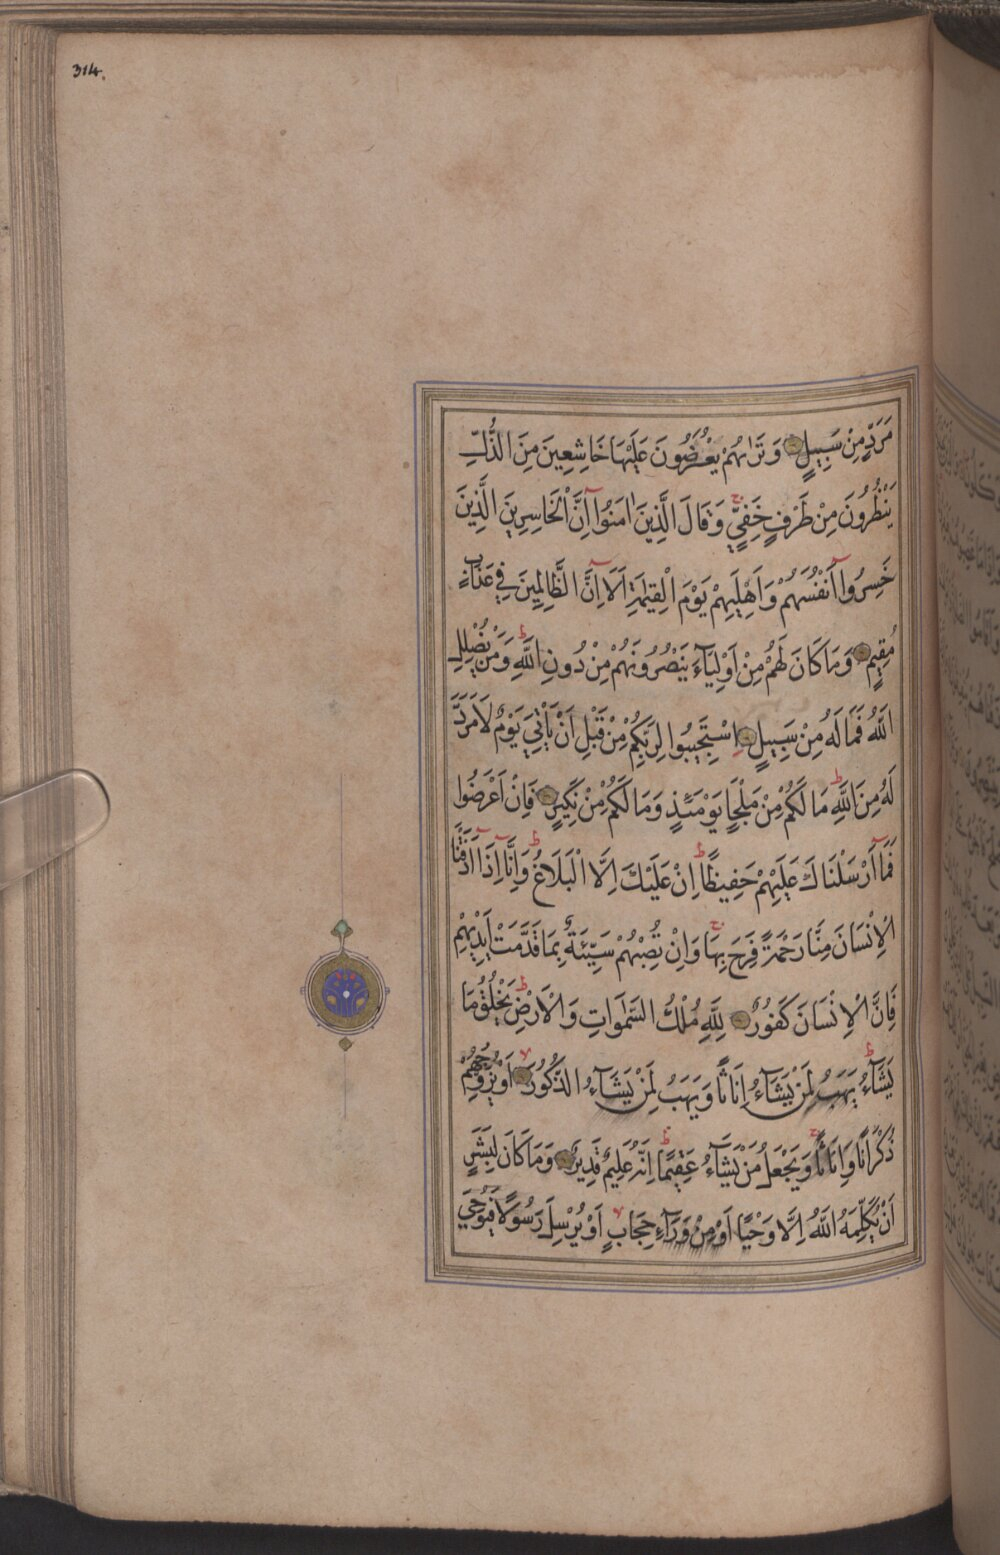 314.
مَرَدٍّ مِنْ سَبِيلٍ وَتَرٰيهُمْ يُعْرَضُونَ عَلَيْهَا خَاشِعِينَ مِنَ الذُّلِّ
يَنْظُرُونَ مِنْ طَرْفٍ خَفِيٍّ ج وَقَالَ الَّذِينَ اٰمَنُوٓا اِنَّ الْخَاسِرِينَ الَّذِينَ
خَسِرُوٓا اَنْفُسَهُمْ وَاَهْلِيهِمْ يَوْمَ الْقِيٰمَةِ اَلَآ اِنَّ الظَّالِمِينَ فِي عَذَابٍ
مُقِيمٍ وَمَا كَانَ لَهُمْ مِنْ اَوْلِيَآءَ يَنْصُرُونَهُمْ مِنْ دُونِ اللّٰهِ ط وَمَنْ يُضْلِلِ
اللّٰهُ فَمَا لَهُ مِنْ سَبِيلٍ اِسْتَجِيبُوا لِرَبِّكُمْ مِنْ قَبْلِ اَنْ يَأْتِيَ يَوْمٌ لَا مَرَدَّ
لَهُ مِنَ اللّٰهِ ط مَا لَكُمْ مِنْ مَلْجَاٍ يَوْمَئِذٍ وَمَا لَكُمْ مِنْ نَكِيرٍ فَاِنْ اَعْرَضُوا
فَمَآ اَرْسَلْنَاكَ عَلَيْهِمْ حَفِيظًا ط اِنْ عَلَيْكَ اِلَّا الْبَلَاغُ ط وَاِنَّآ اِذَآ اَذَقْنَا
الْاِنْسَانَ مِنَّا رَحْمَةً فَرِحَ بِهَا ج وَاِنْ تُصِبْهُمْ سَيِّئَةٌ بِمَا قَدَّمَتْ اَيْدِيهِمْ
فَاِنَّ الْاِنْسَانَ كَفُورٌ لِلّٰهِ مُلْكُ السَّمٰوَاتِ وَالْاَرْضِ ط يَخْلُقُ مَا
يَشَآءُ ط يَهَبُ لِمَنْ يَشَآءُ اِنَاثًا وَيَهَبُ لِمَنْ يَشَآءُ الذُّكُورَ لا اَوْ يُزَوِّجُهُمْ
ذُكْرَانًا وَاِنَاثًا ج وَيَجْعَلُ مَنْ يَشَآءُ عَقِيمًا ط اِنَّهُ عَلِيمٌ قَدِيرٌ وَمَا كَانَ لِبَشَرٍ
اَنْ يُكَلِّمَهُ اللّٰهُ اِلَّا وَحْيًا اَوْ مِنْ وَرَآءِ حِجَابٍ لا اَوْ يُرْسِلَ رَسُولًا فَيُوحِيَ